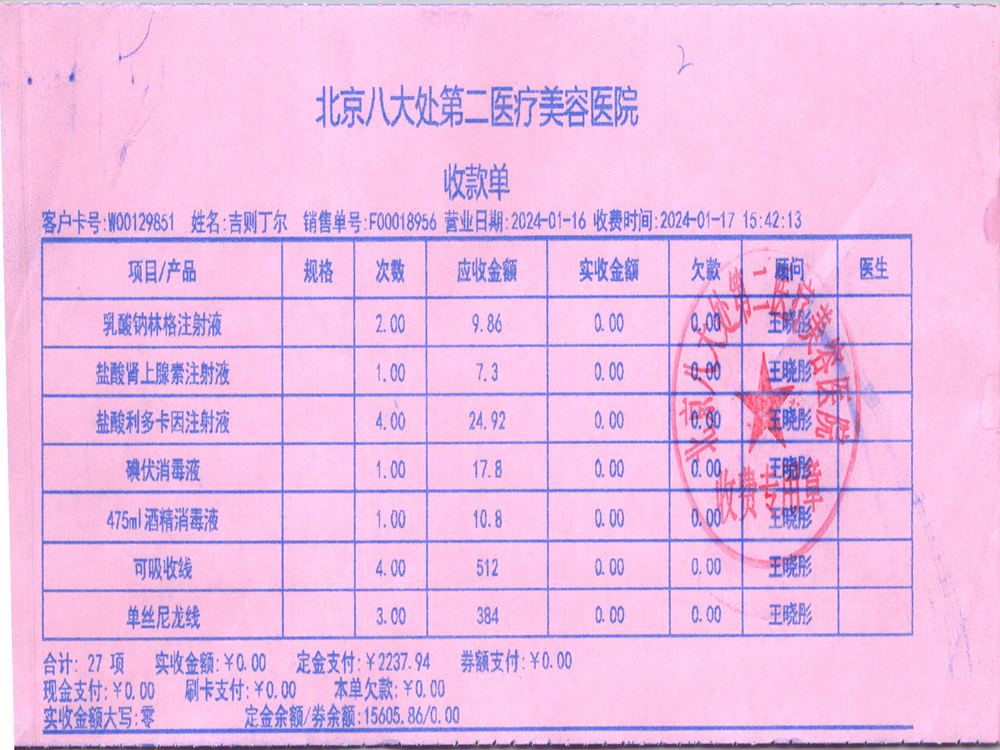 2
北京八大处第二医疗美容医院
收款单
客户卡号:W00129851 姓名:吉则丁尔 销售单号:F00018956 营业日期:2024-01-16 收费时间:2024-01-17 15:42:13
项目/产品 规格 次数 应收金额 实收金额 欠款 顾问 医生
乳酸钠林格注射液 2.00 9.86 0.00 0.00 王晓彤
盐酸肾上腺素注射液 1.00 7.3 0.00 0.00 王晓彤
盐酸利多卡因注射液 4.00 24.92 0.00 0.00 王晓彤
碘伏消毒液 1.00 17.8 0.00 0.00 王晓彤
475ml酒精消毒液 1.00 10.8 0.00 0.00 王晓彤
可吸收线 4.00 512 0.00 0.00 王晓彤
单丝尼龙线 3.00 384 0.00 0.00 王晓彤
北京八大处第二医疗美容医院
收费专用章
合计: 27 项 实收金额:￥0.00 定金支付:￥2237.94 券额支付:￥0.00
现金支付:￥0.00 刷卡支付:￥0.00 本单欠款:￥0.00
实收金额大写:零 定金余额/券余额:15605.86/0.00